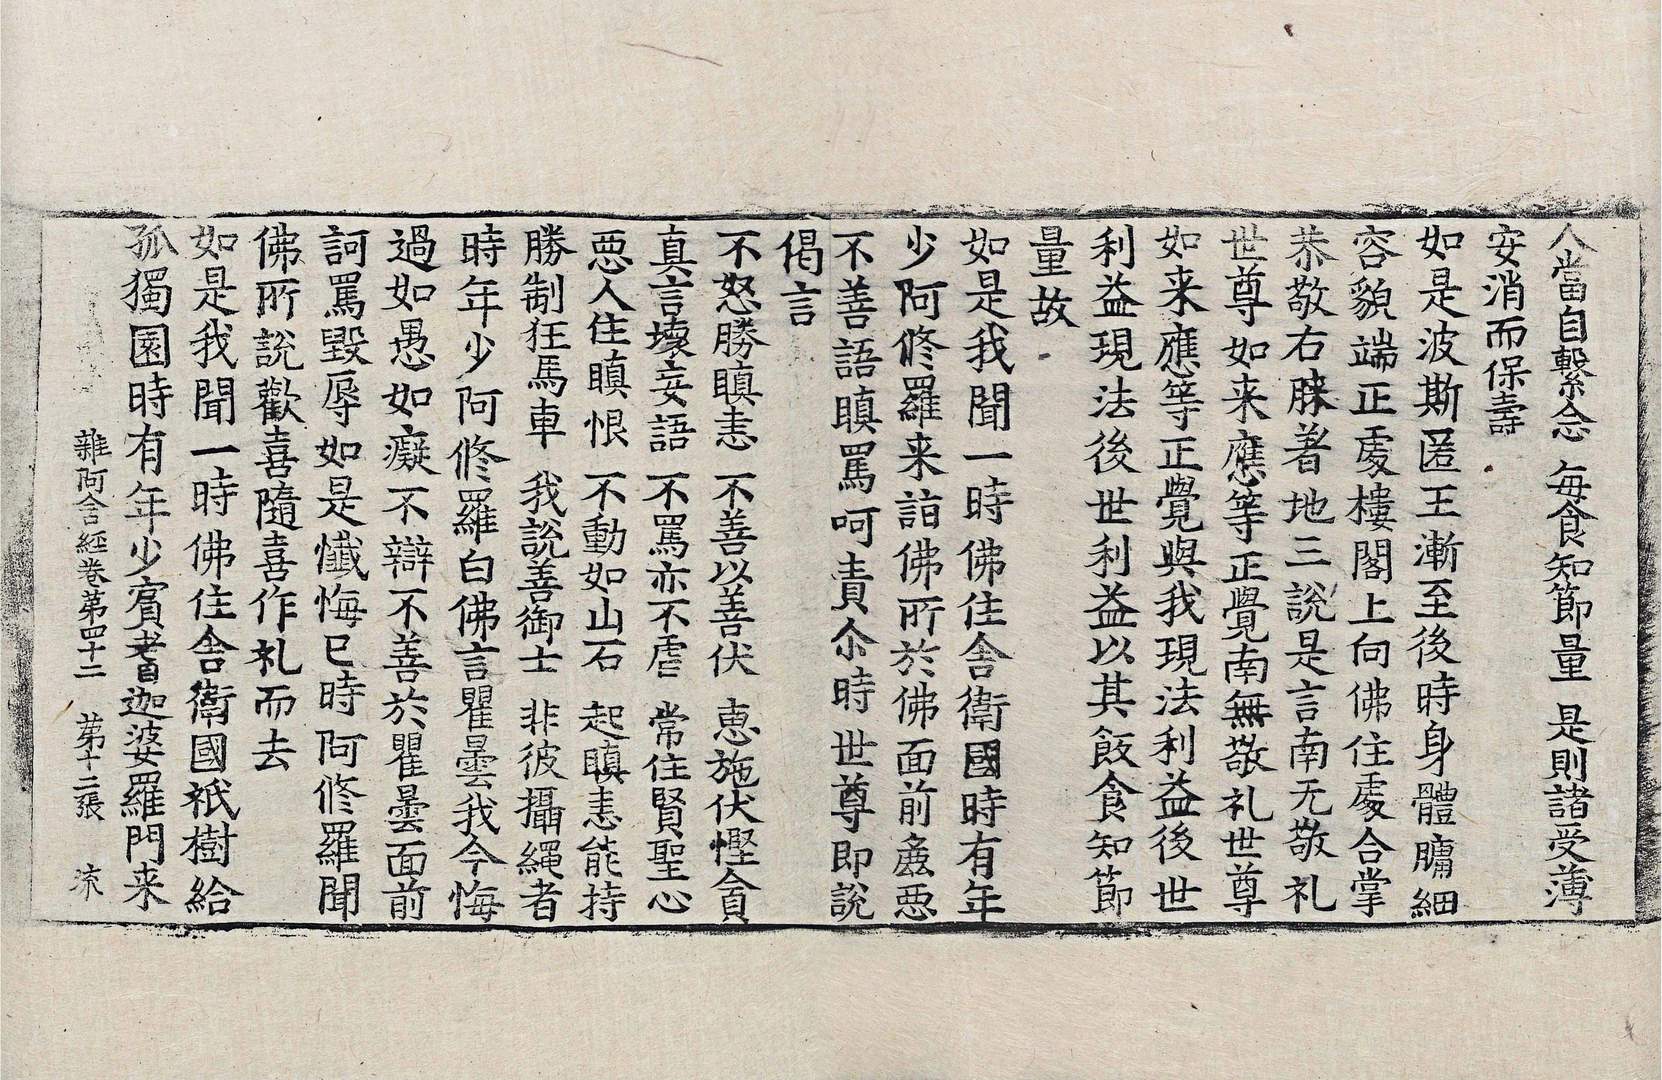 人當自繫念 每食知節量 是則諸受薄
安消而保壽
如是波斯匿王漸至後時身體𦟛細
容貌端正處樓閣上向佛住處合掌
恭敬右膝著地三說是言南无敬礼
世尊如来應等正覺南無敬礼世尊
如来應等正覺與我現法利益後世
利益現法後世利益以其飯食知節
量故
如是我聞一時佛住舍衛國時有年
少阿修羅来詣佛所於佛面前麁惡
不善語瞋罵呵責尒時世尊即說
偈言
不怒勝瞋恚 不善以善伏 惠施伏慳貪
真言壞妄語 不罵亦不虐 常住賢聖心
惡人住瞋恨 不動如山石 起瞋恚能持
勝制狂馬車 我說善御士 非彼攝繩者
時年少阿修羅白佛言瞿曇我今悔
過如愚如癡不辯不善於瞿曇面前
訶罵毀辱如是懺悔已時阿修羅聞
佛所說歡喜隨喜作礼而去
如是我聞一時佛住舍衛國祇樹給
孤獨園時有年少賔耆迦婆羅門来
雜阿含經卷第四十二 第十二張 流